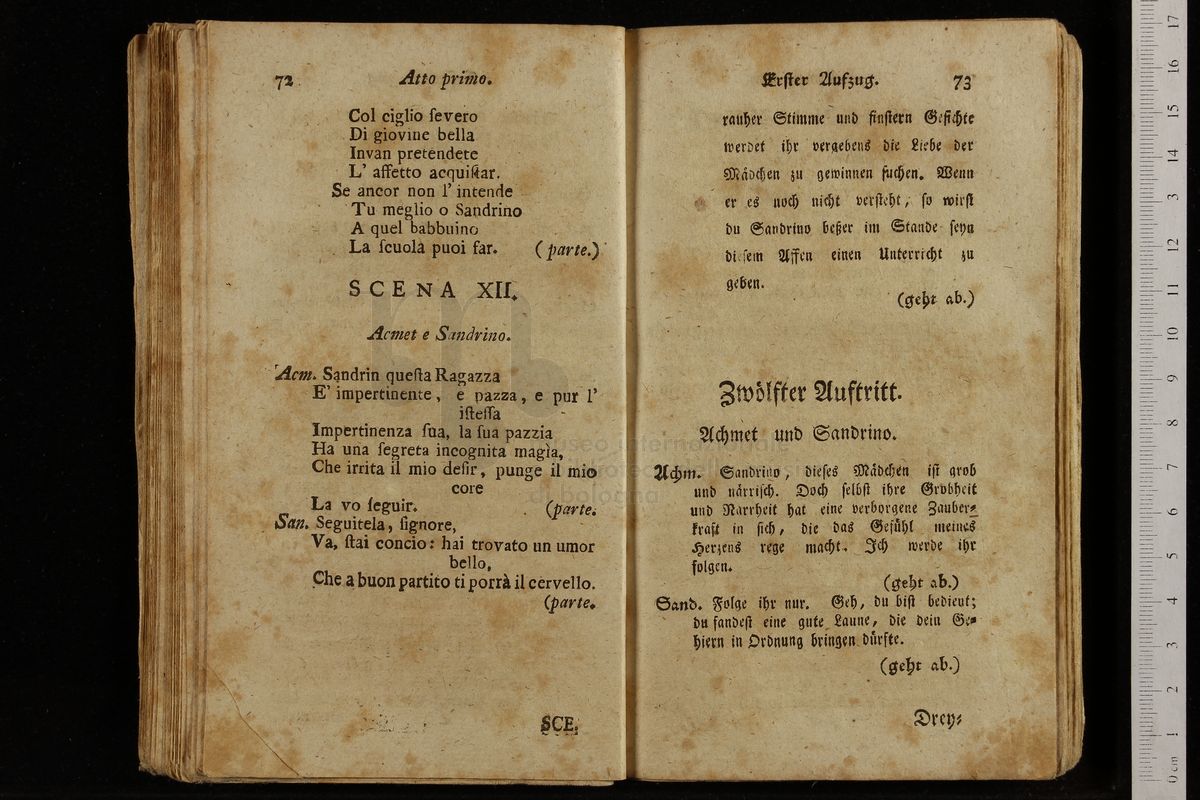 72 Atto primo.
Col ciglio ſevero
Di giovine bella
Invan pretendete
L' affetto acquiſtar.
Se ancor non l' intende
Tu meglio o Sandrino
A quel babbuino
La ſcuola puoi far. (parte.)
SCENA XII.
Acmet e Sandrino.
Acm. Sandrin queſta Ragazza
E' impertinente, e pazza, e pur l'
iſteſſa
Impertinenza ſua, la ſua pazzia
Ha una ſegreta incognita magìa,
Che irrita il mio deſir, punge il mio
core
La vo ſeguir. (parte.
San. Seguitela, ſignore,
Va, ſtai concio: hai trovato un umor
bello,
Che a buon partito ti porrà il cervello.
(parte.
SCE.
Erſter Aufzug. 73
rauher Stimme und finſtern Geſichte
werdet ihr vergebens die Liebe der
Mädchen zu gewinnen ſuchen. Wenn
er es noch nicht verſteht, ſo wirſt
du Sandrino beßer im Stande ſeyn
dieſem Affen einen Unterricht zu
geben.
(geht ab.)
Zwölfter Auftritt.
Achmet und Sandrino.
Achm. Sandrino, dieſes Mädchen iſt grob
und närriſch. Doch ſelbſt ihre Grobheit
und Narrheit hat eine verborgene Zauber-
kraft in ſich, die das Gefühl meines
Herzens rege macht. Ich werde ihr
folgen.
(geht ab.)
Sand. Folge ihr nur. Geh, du biſt bedient;
du fandeſt eine gute Laune, die dein Ge-
hiern in Ordnung bringen dürfte.
(geht ab.)
Drey-
museo internazionale
di bologna
0 cm 1 2 3 4 5 6 7 8 9 10 11 12 13 14 15 16 17